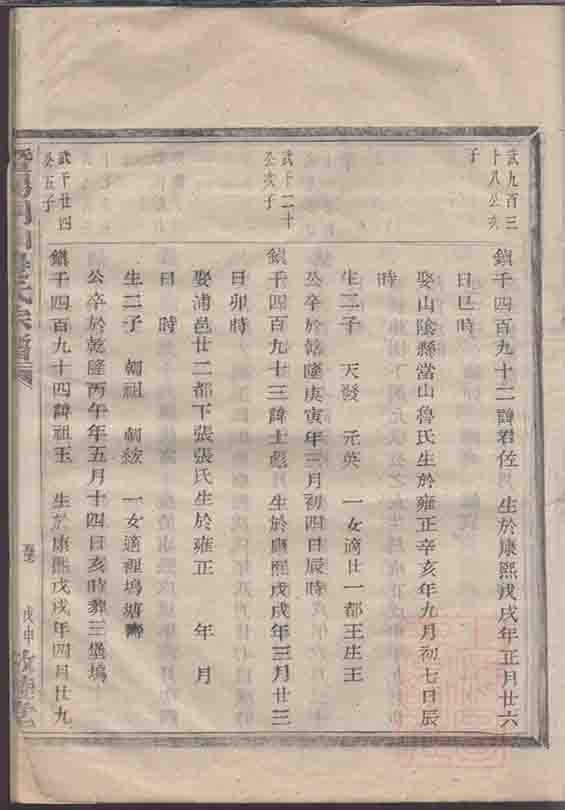 武九百三
十八公次
子
鎭千四百九十二諱君佐　生於康熙戊戌年正月廿六
日巳時
娶山陰縣當山魯氏生於雍正辛亥年九月初七日辰
時
生二子　天發　元英　一女適廿一都王庄王
公卒於乾隆庚寅年三月初四日辰時
武千二十
公次子
鎭千四百九十三諱士彪　生於康熙戊戌年三月廿三
日卯時
娶浦邑廿二都下張張氏生於雍正　年　月
日　時
生二子　朝祖　朝　一女適裡塢
公卒於乾隆丙午年五月十四日亥時葬三堡塢
武千廿四
公五子
鎭千四百九十四諱祖玉　生於康熙戊戌年四月廿九
氏宗譜
戊申